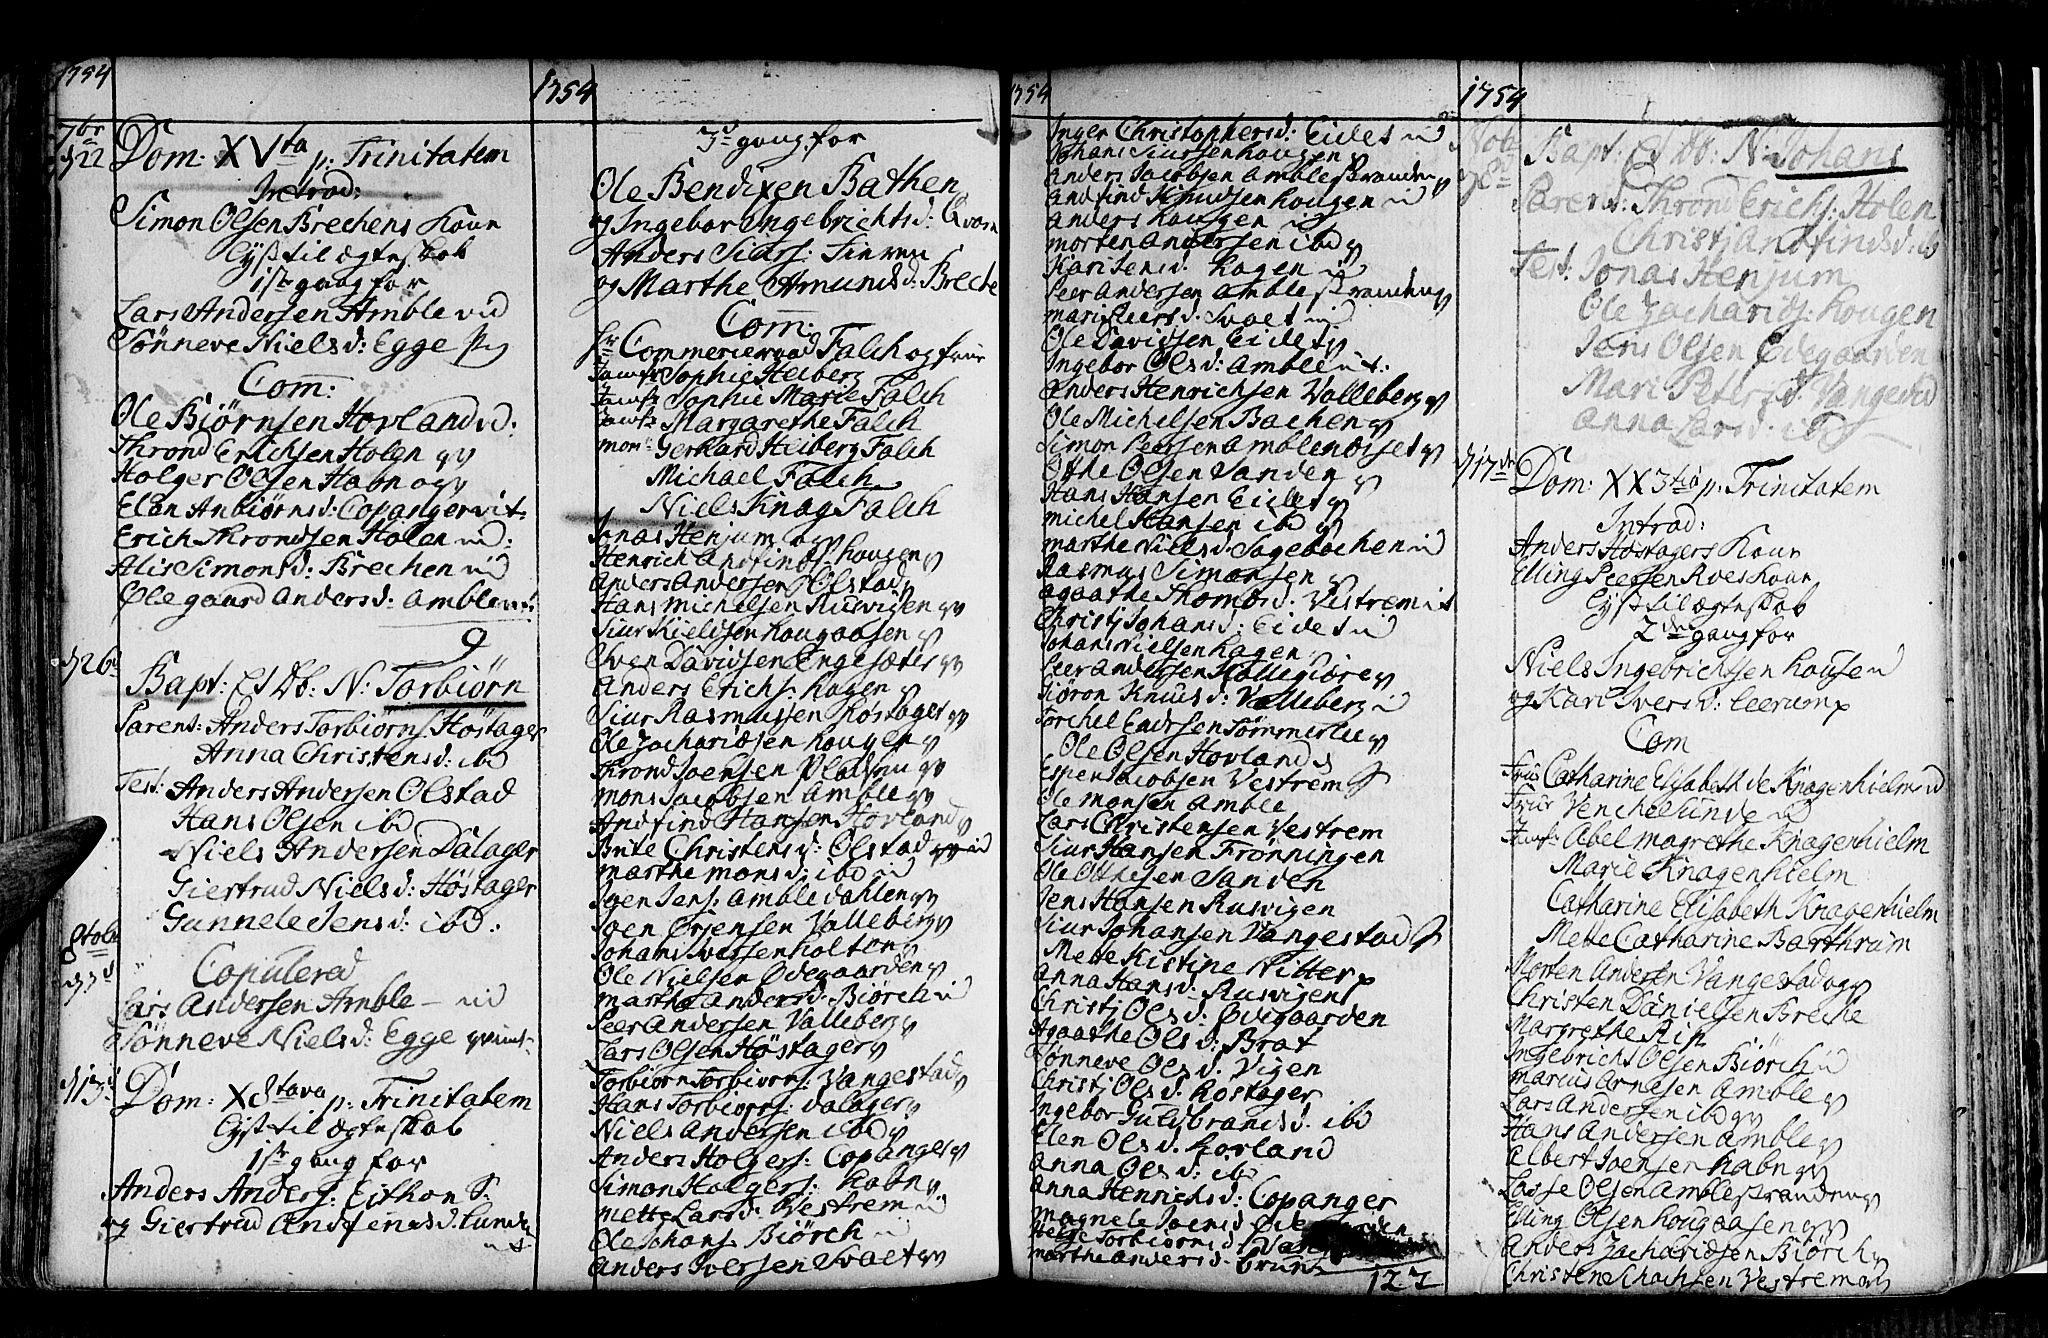 1754
7br
d 22 Dom: XVta p. Trinitatem
Introd:
Simon Olsen Brechens Konn
Lyst til ægteskab
1ste gang for
Lars Andersen Amble
Tønneve Nielsd: Egge
Com:
Ole Biørnsen Hovland
Thrond Erichsen Holen
Holger Olsen Habn og
Elen Anbiørnsd: Copanger
Erich Throndsen Holen
Alis Simonsd: Brechen
Ølegaard Andersd: Amble
9
d 26 Bapt: Et Db: N: Torbiørn
Parent: Anders Torbiorns: Høstager
Anna Christensd: ibd
Test: Anders Andersen Olstad
Hans Olsen ibd
Niels Andersen Dalager
Giertrud Nielsd: Høstager
Gunnele Jensd: ibd:
8tobr
d 3 Copulered
Lars Andersen Amble
Tønneve Nielsd: Egge
d 13 Dom: X8tava p. Trinitatem
Lyst til ægteskab
1ste gang for
Anders Anders: Eithon
og Giertrud
1754
3d gang for
Ole Bendixen Bathen
og Ingebor Ingebrichtsd: Qvam
Anders Siurs:
og Marthe Amundsd: Breche
Com:
Hr Commerceraad Falch og frue
Jomfr Sophie Heiberg
Jomfr Sophie Marie Falch
Jomfr Margarethe Falch
mon: Gerhard Heiberg Falch
Michael Falch
Niels Knag Falch
Jonas Henjum
Henrich Andfinds: hougen
Anders Andersen Olstad
Hans Michelsen Rusvigen
Siur Kieldsen hougaasen
Iver Davidsen Engesæter
Anders Erichs: hagen
Siur Rasmussen Røstager
Ole Zachariasen hougen
Thrond Joensen Pladsen
mons Jacobsen Amble
Andfind Hansen Hovland
Brite Christensd: Olstad
marthe monsd: ibd
Joen Jens: Ambledahlen
Joen Ørjensen Valleberg
Johans Iversen holten
Ole Nielsen Ødegaarden
marthe andersd: Biørch
Peer Andersen Valleberg
Lars Olsen Høstager
Torbiorn Torbiorns: Vangestad
Hans Torbiorns: dalager
Niels Andersen ibd
Anders Holgers: Copanger
Simon Holgers: habn
mette Larsd: Vestrem
Ole Johans: Biörch
Anders Iversen Svaet
1754
Inger Christophersd: Eidet
Johans Siursen hougen
Anders Jacobsen Amblestranden
Andfind Knudsen hougen
Anders hougen
morten Andersen ibd
Kari Jensd: hagen
Peer Andersen Amblestranden
mari Peersd: Svaet
Ole Davidsen Eidet
Ingebor Olsd: Amble
Anders Henrichsen Valleberg
Ole Michelsen Bachen
Simon Peersen Amblenæsset
Othe Olsen Sanden
Hans Hansen Eidet
michel Hansen ibd
marthe Nielsd: Sagebachen
Rasmus Simonsen
agaathe Thomæsd: Vestrem
Christj Johansd: Eidet
Johans Nielsen hagen
Peer Andersen Kollegiøre
Siøron Knudsd: Valleberg
Torchel Endresen Sømmerlie
Ole Olsen Hovland
Esper Jacobsen Vestrem
Ole monsen Amble
Lars Christensen Vestrem
Siur Hansen Frønningen
Ole Othesen Sanden
Jens Hansen Rusvigen
Siur Johansen Vangestad
Mette Kistine Nitter
Anna Hansd: Rusvigen
Christj Olsd: Ødegaarden
Agaathe Olsd: Brat
Tønneve Olsd: Vigen
Christj Olsd: Røstager
Ingebor Guldbrandsd: ibd
Elen Olsd: Hovland
Anna Olsd: ibd
Anna Henrichsd: Copanger
Magnele Joensd:
Helge Torbiørnsd:
marthe andersd:
127
1754
Nob
d 8 Bapt: Et Db: N: Johans
Parent: Thrond Erichs: Holen
Christj Andfindsd: ib
Test: Jonas Henjum
Ole Zacharids: hougen
Jens Olsen Ødegaarden
Mari Petersd: Vange
Anna Larsd: ibd
d 17de Dom: XX3tio p. Trinitatem
Introd:
Anders Høstagers Konn
Elling Peersen Roes Konn
Lyst til ægteskab
2den gang for
Niels Ingebrichtsen house
og Kari Iversd: Eerum
Com
Frue Catharine Elisabeth de Knagenhielm
Frue Venche Lunde
Jomfr: Abel Magrethe Knagenhielm
Marie Knagenhielm
Catharine Elisabeth Knagenhielm
Mette Catharine Barthrum
Morten Andersen Vangestad
Christen Danielsen Breche
Margrethe Rip
Ingebricht Olsen Biørch
Marius Arnesen Amble
Lars Andersen ibd
Hans Andersen Amble
Albert Joensen habn
Lasse Olsen Amblestranden
Elling Olsen hougaasen
Anders Zachariasen Biörch
Christen Schachsen Vestrem